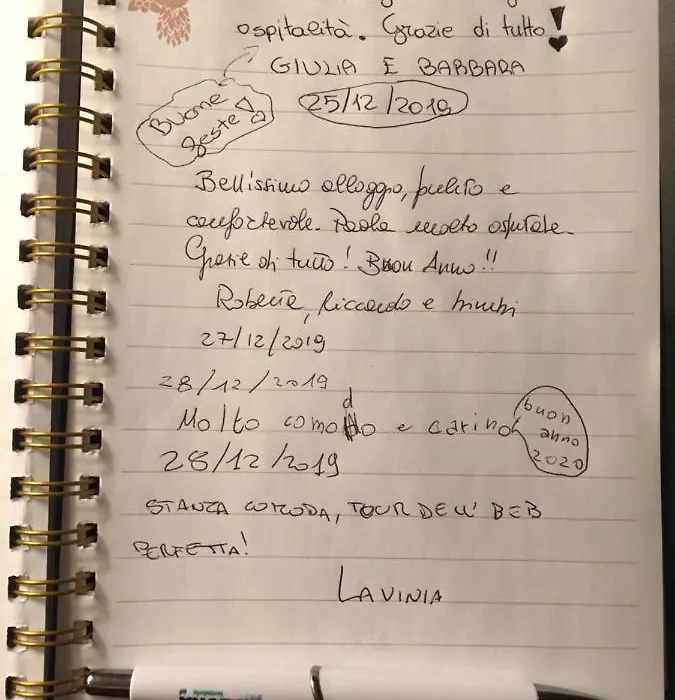 ospitalità. Grazie di tutto!
GIULIA E BARBARA
Buone
feste!
25/12/2019
Bellissimo alloggio, pulito e
confortevole. Paola molto ospitale.
Grazie di tutto! Buon Anno!!
Roberta, Riccardo e bimbi
27/12/2019
28/12/2019
Molto comodo e carino
buon
anno
2020
28/12/2019
STANZA COMODA, TOUR DELL' BEB
PERFETTA!
LAVINIA